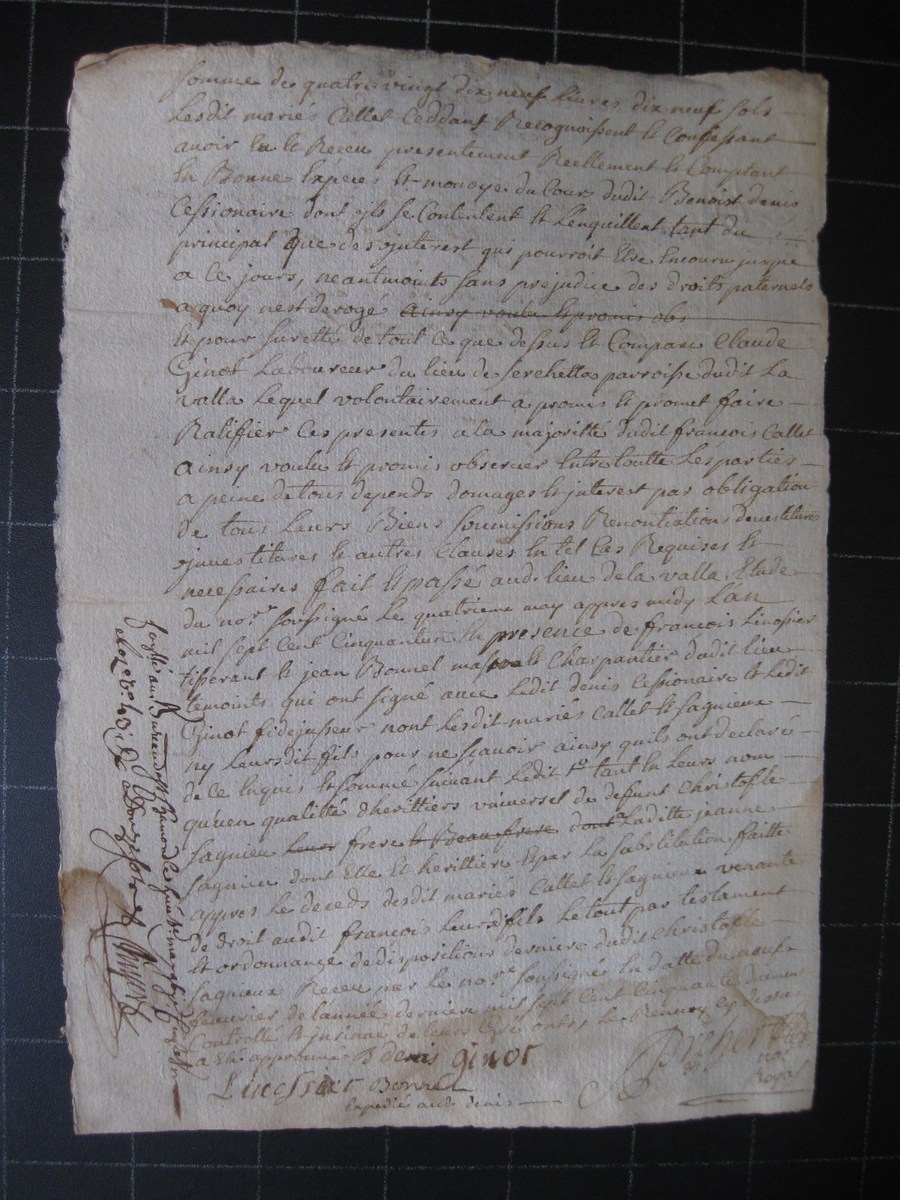 somme de quatre vingt dix neuf livres dix neuf sols
Lesdit mariés Callet Ceddant Recognoissent et Confessant
avoir eu et Receu presentement Reellement et Comptant
en Bonne Especes et monoye du Cour dudit Benoist denis
Cessionaire dont ils se Contentent et l'enquillent tant du
principal que des jnterest qui pourroit Etre Encouru jusque
a Ce jours, neantmoints sans prejudice des droits paternels
a quoy n'est derogé ainsy voulu et promis obs
Et pour suretté de tout Ce que dessus Et Comparu Claude
Ginot Laboureur du lieu de serchette parroisse dudit La
valla Lequel volontairement a promis et promet faire
Ratifier Ces presentes a la majoritté dudit francois Callet
ainsy voulu et promis observer Entre toutte Les parties
a peine de tous depends domages et jnterest par obligation
de tous Leurs Biens soumissions Renontiations devestitures
jnvestitures et autres Clauses en tel Cas Requises et
necessaires fait et passé aud. lieu de la valla Etude
du nore. soussigné Le quatrieme may appres midy L'an
mil sept Cent Cinquante un En presence de francois Linossier
tisserant et jean Bonnel Charpantier dudit lieu
temoints qui ont signé avec Ledit denis Cessionaire et Ledit
Ginot fidejusseur nont Lesdit mariés Callet et sagnieux
ny Leursdit fils pour ne scavoir ainsy quils ont declaré
de Ce Enquis et somme suivant Ledit tant En Leurs nom
qu'en qualitté d'herittiers universel de defunt Christofle
sagnieu Leur frere et Beau frere Laditte jeanne
sagnieu dont Elle Et herittiere Et par La substitution faitte
appres Le deceds desdit mariés Callet et sagnieux venante
de droit audit francois Leurs fils Le tout par testament
Et ordonnance de disposition derniere dudit Christofle
sagnieux Receu par le nore. soussigné En datte du neuf
fevrier de L'année derniere mil sept Cent Cinquante duement
Controllé Et jnsinué
a Eté approuvé B denis ginot
Linossier Bonnel
nore
Royal
Expedié aud. denis